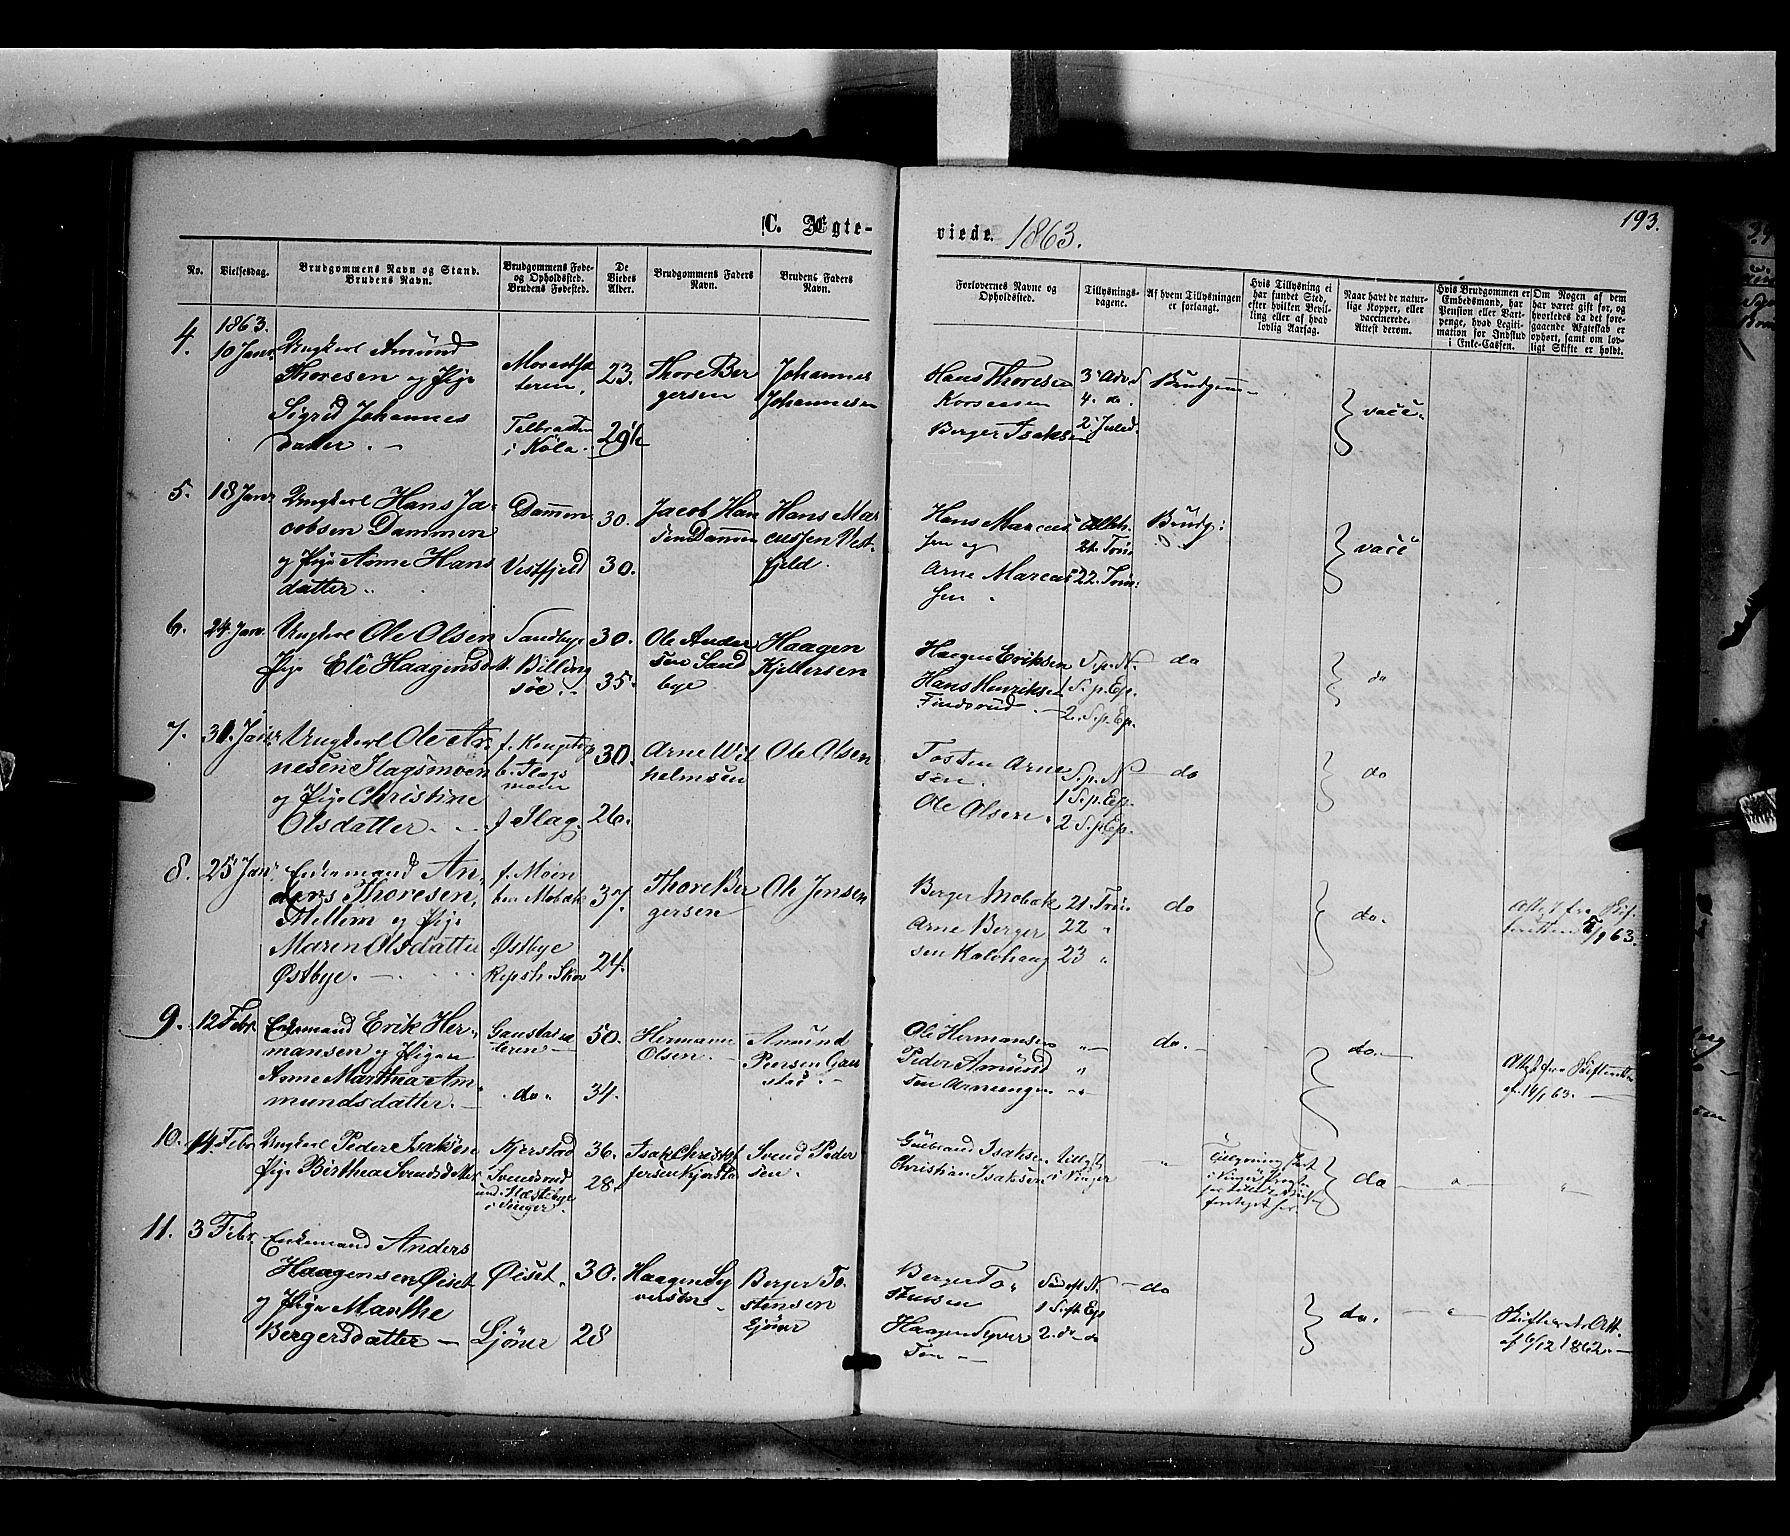 C. Ægte-
viede. 1863.
193.
No.
Vielsesdag.
Brudgommens Navn og Stand.
Brudens Navn.
Brudgommens Føde-
og Opholdssted.
Brudens Fødested.
De
Viedes
Alder.
Brudgommens Faders
Navn.
Brudens Faders
Navn.
Forlovernes Navne og
Opholdssted.
Tillysnings-
dagene.
Af hvem Tillysningen
er forlangt.
Hvis Tillysning ei
har fundet Sted,
efter hvilken Bevil-
ling eller af hvad
lovlig Aarsag.
Naar havt de natur-
lige Kopper, eller
vaccinerede.
Attest derom.
Hvis Brudgommen er
Embedsmand, har
Pension eller Vart-
penge, hvad Legiti-
mation for Indskud
i Enke-Cassen.
Om Nogen af dem
har været gift før, og
hvorledes da det fore-
gaaende Ægteskab er
ophørt, samt om lov-
ligt Skifte er holdt.
4.
1863.
10 Janr
Ungkarl Amund
Thoresen og Pige
Sigrid Johannes
datter.
i Köla.
23.
29½
Thore Ber
gersen
Johannes
Johannesen
Hans Thoresen
Korsaasen
Berger Isaksen
3 Adv. S
4. do.
2. Juled.
Brudgom
vacc.
5.
18 Janr
Ungkarl Hans Ja-
cobsen Dammen
og Pige Anne Hans
datter.
Dammen
Vestfjeld
30.
30.
Jacob Han
sen Dammen
Hans Mar
cussen Vest-
fjeld.
Hans Marcus
sen og
Arne Marcus
sen
21. Trin
22. Trin
Brudg:
vacc
6.
24 Janr.
Ungkarl Ole Olsen
Pige Eli Haagensd
Sandbye
Billing
söe.
30.
35.
Ole Ander
sen Sand
bye
Haagen
Kjeldersen
Haagen Eriksen
Hans Henriksen
Findsrud.
S.p.N.
1 S.p.Ep.
2. S.p.Ep.
do
do
7.
31. Janr
Ungkarl Ole Ar-
nesen Flagsmoen
og Pige Christine
Olsdatter.
f. Kongstorp
b. Flags
moen
f Flag.
30.
26.
Arne Wil
helmsen
Ole Olsen
Tosten Arne
sen.
Ole Olsen.
S.p.N
1 S.p.Ep.
2 S.p.Ep.
do
do
8.
25 Janr
Enkemand An-
ders Thoresen,
og Pige
Maren Olsdatter
Østbye.
f. Moen
boe Mobæk
Østbye
37.
24.
Thore Ber
gersen
Ole Jensen
Berger Mobæk
Arne Berger
sen Kalvhaug
21. Trin
22 "
23 "
do
do.
9.
12 Febr.
Enkemand Erik Her-
mansen og Pigen
Anne Marthea Am-
mundsdatter.
Gaustadsæ
teren
do.
50.
34.
Hermann
Olsen.
Amund
Peersen Gau
stad.
Ole Hermansen
Peder Amund
sen Arneengen
do.
do.
Attest fra Skifteretten
af 14/1 63.
10.
14. Febr
Ungkarl Peder Isaksen
Pige Birthea Svendsdatter
Kjerstad
Svensrud
i Vinger.
36.
28.
Isak Christof
fersen Kjerstad
Svend Peder
sen.
Gulbrand Isaksen
Christian Isaksen
i Vinger
do
11.
3 Febr.
Enkemand Anders
Haagensen Øiset
og Pige Marthe
Bergersdatter
Øiset.
Ljöner
30.
28
Haagen Sy
versen
Berger To
stensen
Ljöner
Berger To
stensen
Haagen Syver
sen
1 S.p. Ep
2. do
do
do.
Skifterets Att.
af 6/12 1862.